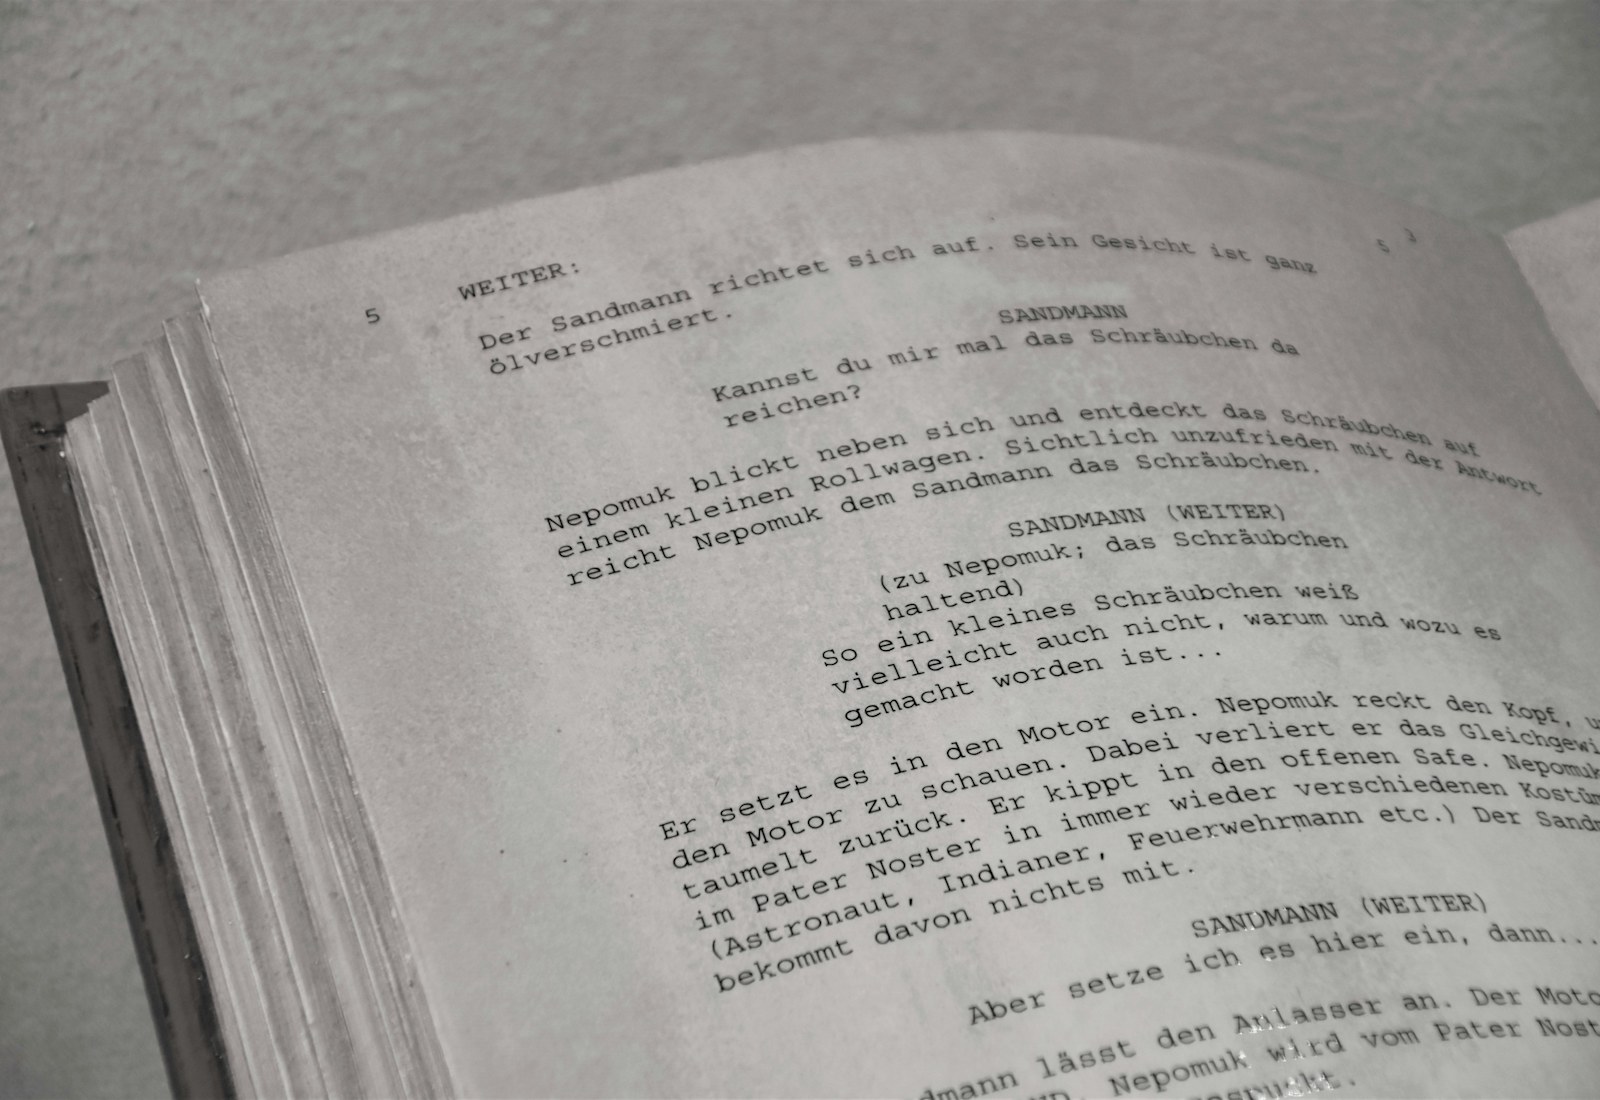 5 WEITER: 5
Der Sandmann richtet sich auf. Sein Gesicht ist ganz
ölverschmiert.
SANDMANN
Kannst du mir mal das Schräubchen da
reichen?
Nepomuk blickt neben sich und entdeckt das Schräubchen auf
einem kleinen Rollwagen. Sichtlich unzufrieden mit der Antwort
reicht Nepomuk dem Sandmann das Schräubchen.
SANDMANN (WEITER)
(zu Nepomuk; das Schräubchen
haltend)
So ein kleines Schräubchen weiß
vielleicht auch nicht, warum und wozu es
gemacht worden ist...
Er setzt es in den Motor ein. Nepomuk reckt den Kopf,
den Motor zu schauen. Dabei verliert er das
taumelt zurück. Er kippt in den offenen Safe. Nepomuk
im Pater Noster in immer wieder verschiedenen
(Astronaut, Indianer, Feuerwehrmann etc.) Der
bekommt davon nichts mit.
SANDMANN (WEITER)
Aber setze ich es hier ein, dann...
lässt den Anlasser an. Der
Nepomuk wird vom Pater